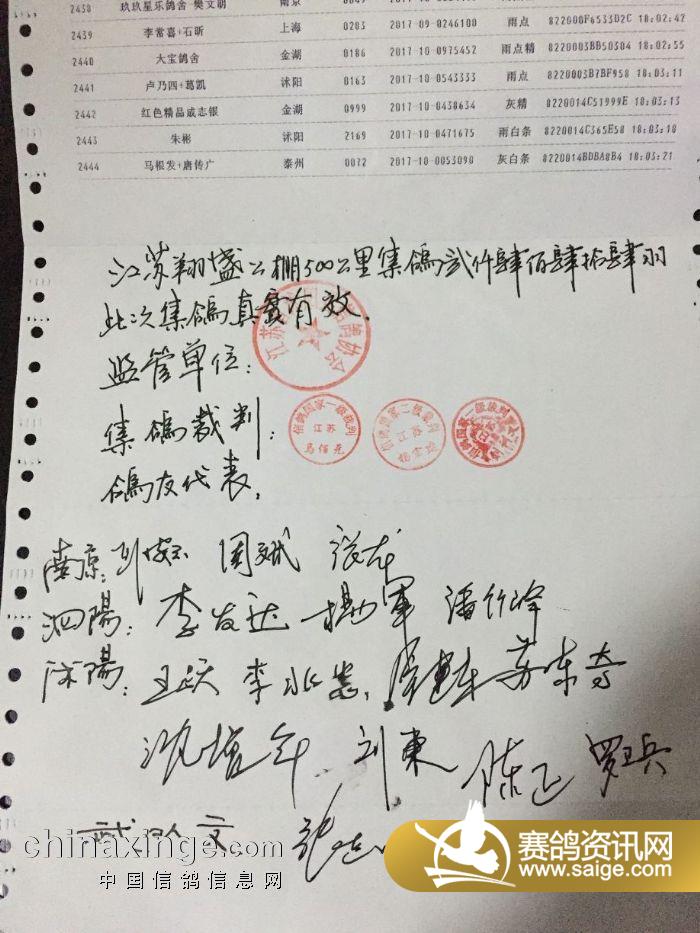 2438 玖玖星乐鸽舍-樊文明 南京
2439 李常喜+石昕 上海 0203 2017-09-0246100 雨点 822000F6533D2C 18:02:42
2440 大宝鸽舍 金湖 0186 2017-10-0975452 雨点精 8220003BB50304 18:02:55
2441 卢乃四+葛凯 沭阳 0163 2017-10-0543333 雨点 8220003B7BF958 18:03:11
2442 红色精品戚志银 金湖 0999 2017-10-0438634 灰精 8220014C51999E 18:03:13
2443 朱彬 沭阳 2169 2017-10-0471675 雨白条 8220014C365E58 18:03:18
2444 马根发+唐传广 泰州 0072 2017-10-0053098 灰白条 8220014BDBA8B4 18:03:21
江苏翔盛公棚500公里集鸽贰仟肆佰肆拾肆羽
此次集鸽真实有效.
监管单位:
集鸽裁判:
信鸽国家一级裁判 江苏
信鸽国家二级裁判 江苏
信鸽国家一级裁判
鸽友代表.
南京: 周斌 张龙
泗陽: 李友达 杨军 潘竹峰
沭陽: 王跃 李兆 苏东
沈增年 刘東 陈正 罗卫兵
文
chinaxinge.com
中国信鸽信息网
赛鸽资讯网
www.saige.com